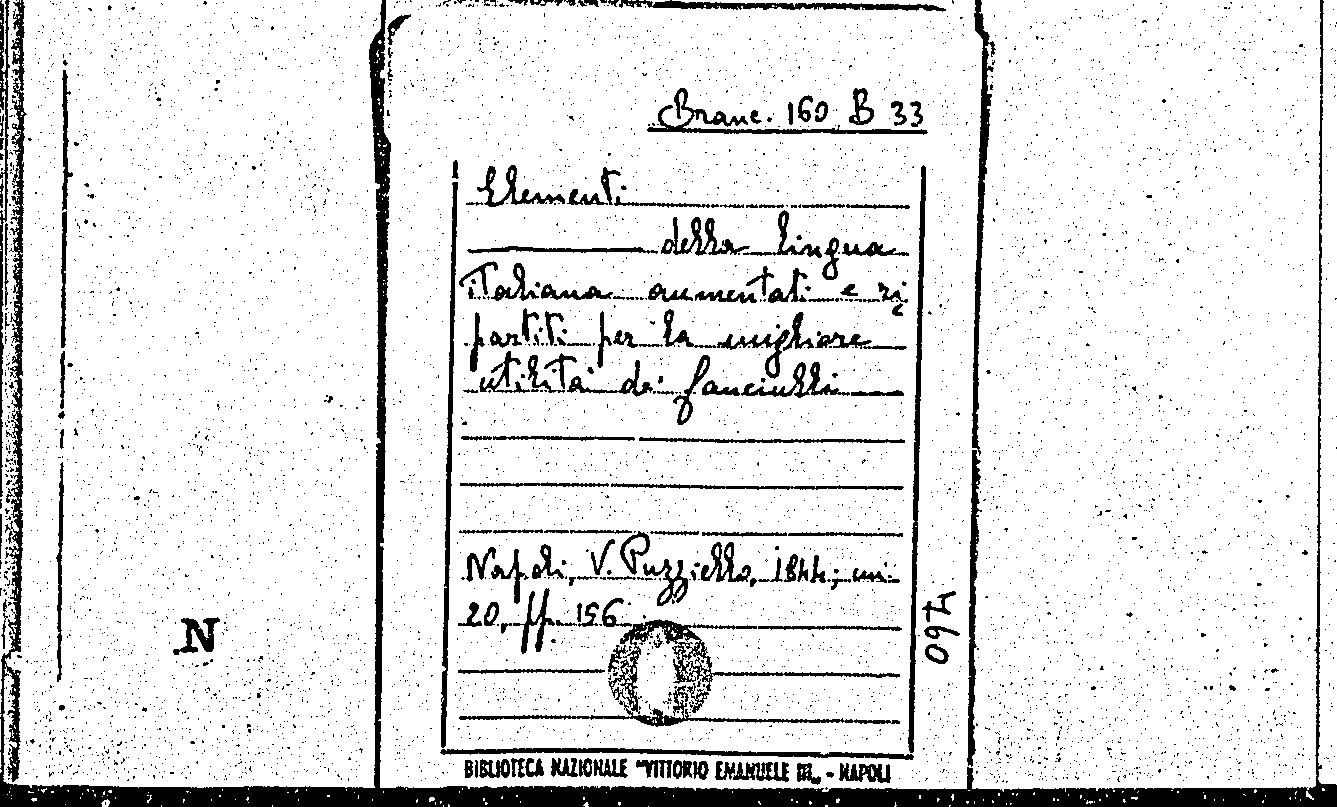 Branc. 160 B 33
Elementi
della lingua
italiana aumentati e ri
partiti per la migliore
utilità dei fanciulli
Napoli, V. Puzziello, 1844; in-
20, pp. 156
460
N
BIBLIOTECA NAZIONALE "VITTORIO EMANUELE III„ - NAPOLI